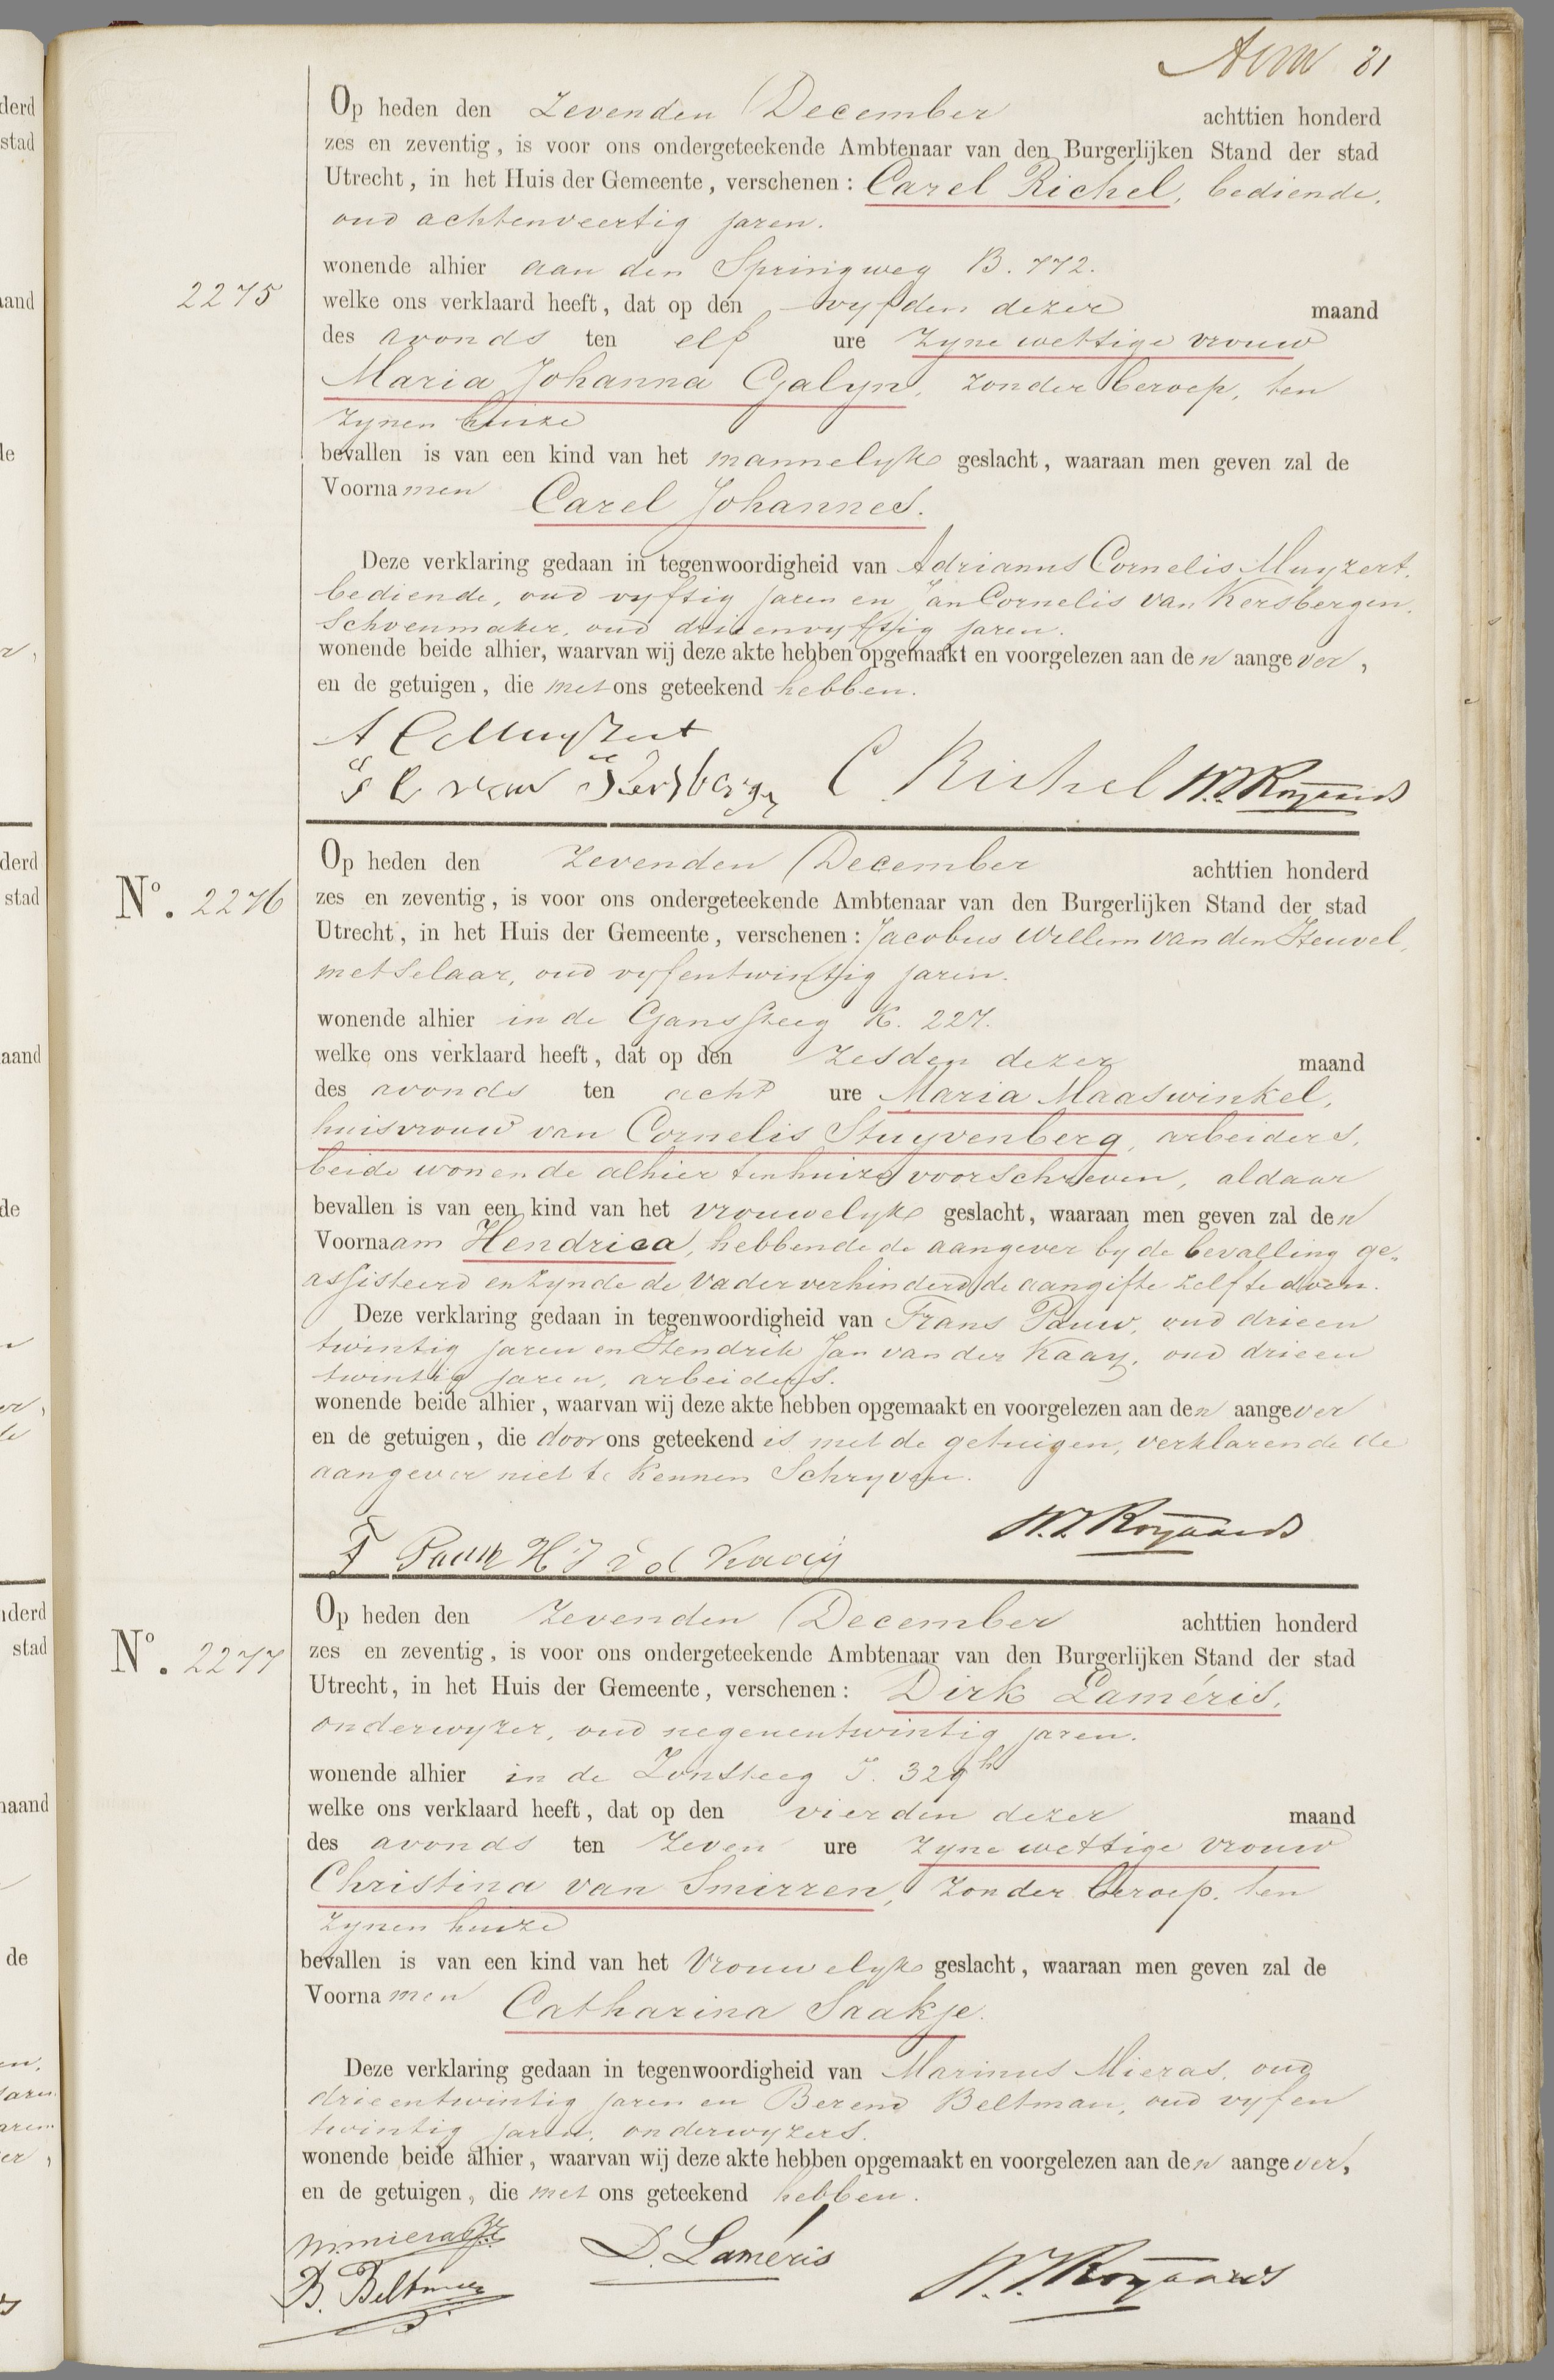 81
Op heden den Zevenden December achttien honderd
zes en zeventig, is voor ons ondergeteekende Ambtenaar van den Burgerlijken Stand der stad
Utrecht, in het Huis der Gemeente, verschenen: Carel Richel, bediende,
oud achtenveertig jaren.
wonende alhier aan den Springweg B. 772.
2275
welke ons verklaard heeft, dat op den vyfden dezer maand
des avonds ten elf ure zyne wettige vrouw
Maria Johanna Galyn, zonder beroep, ten
zynen huize
bevallen is van een kind van het mannelyk geslacht, waaraan men geven zal de
Voornamen Carel Johannes.
Deze verklaring gedaan in tegenwoordigheid van Adrianus Cornelis Muyzert,
bediende, oud vyftig jaren en Jan Cornelis van Kersbergen,
Schoenmaker, oud drieenvyftig jaren.
wonende beide alhier, waarvan wij deze akte hebben opgemaakt en voorgelezen aan den aangever,
en de getuigen, die met ons geteekend hebben.
A C Muyzert
J C van Kersbergen C Richel W.J. Royaards
Op heden den Zevenden December achttien honderd
No. 2276
zes en zeventig, is voor ons ondergeteekende Ambtenaar van den Burgerlijken Stand der stad
Utrecht, in het Huis der Gemeente, verschenen: Jacobus Willem van den Heuvel,
metselaar, oud vyfentwintig jaren.
wonende alhier in de Ganssteeg K. 227.
welke ons verklaard heeft, dat op den Zesden dezer maand
des avonds ten acht ure Maria Maaswinkel,
huisvrouw van Cornelis Stuyvenberg, arbeiders,
beide wonende alhier ten huize voorschreven, aldaar
bevallen is van een kind van het vrouwelyk geslacht, waaraan men geven zal den
Voornaam Hendrica, hebbende de aangever by de bevalling ge-
assisteerd en zynde de Vader verhinderd de aangifte zelf te doen.
Deze verklaring gedaan in tegenwoordigheid van Frans Pauw, oud drieen
twintig jaren en Hendrik Jan van der Kaay, oud drieen
twintig jaren, arbeiders.
wonende beide alhier, waarvan wij deze akte hebben opgemaakt en voorgelezen aan den aangever
en de getuigen, die door ons geteekend is met de getuigen, verklarende de
aangever niet te kennen Schryven.
W.J. Royaards
F Pauw H J v d Kaay
Op heden den Zevenden December achttien honderd
No. 2277
zes en zeventig, is voor ons ondergeteekende Ambtenaar van den Burgerlijken Stand der stad
Utrecht, in het Huis der Gemeente, verschenen: Dirk Laméris,
onderwyzer, oud negenentwintig jaren.
wonende alhier in de Zonsteeg J. 329h
welke ons verklaard heeft, dat op den vierden dezer maand
des avonds ten Zeven ure zyne wettige vrouw
Christina van Smirren, zonder beroep, ten
zynen huize
bevallen is van een kind van het Vrouwelyk geslacht, waaraan men geven zal de
Voornamen Catharina Saakje.
Deze verklaring gedaan in tegenwoordigheid van Marinus Mieras, oud
drieentwintig jaren en Berend Beltman, oud vyfen
twintig jaren, onderwyzers.
wonende beide alhier, waarvan wij deze akte hebben opgemaakt en voorgelezen aan den aangever,
en de getuigen, die met ons geteekend hebben.
M. Mieras
B. Beltman D. Laméris W.J. Royaards